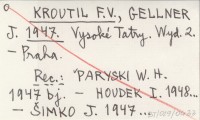 KROUTIL F.V., GELLNER
J. 1947. Vysoké Tatry. Wyd. 2.
– Praha.
Rec.: PARYSKI W. H.
1947 bj. – HOUDEK I. 1948...
– ŠIMKO J. 1947...